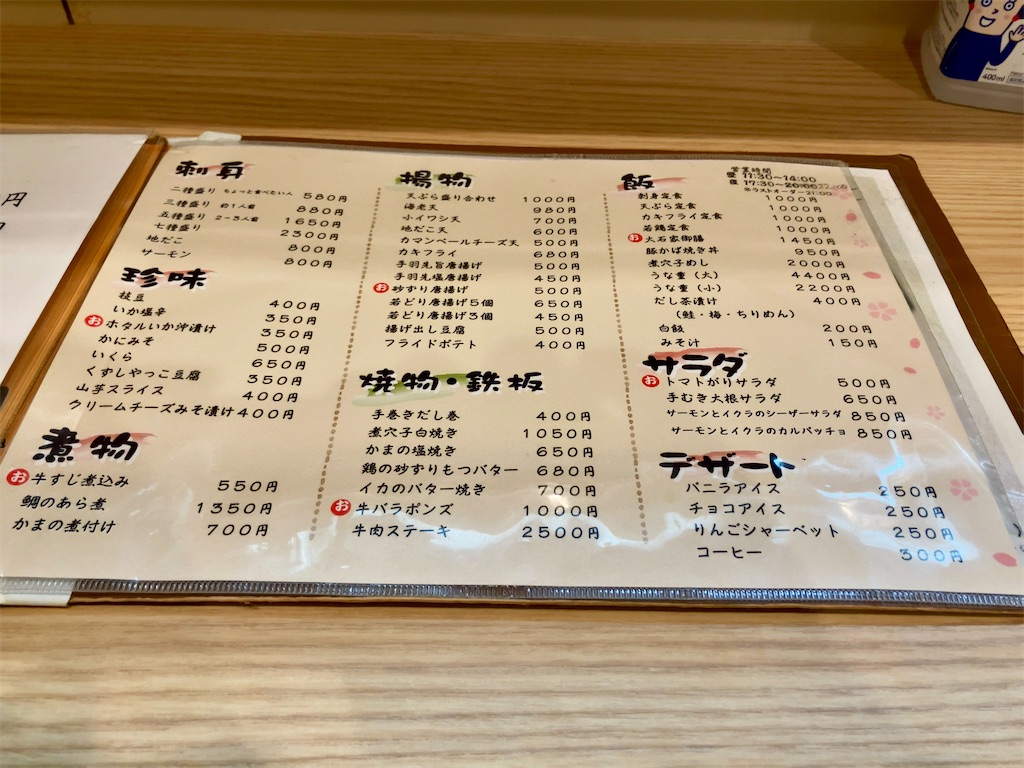 円
刺身
二種盛り ちょっと食べたい人 580円
三種盛り 約1人前 880円
五種盛り 2~3人前 1650円
七種盛り 2300円
地だこ 800円
サーモン 800円
珍味
枝豆 400円
いか塩辛 350円
お ホタルいか沖漬け 350円
かにみそ 500円
いくら 650円
くずしやっこ豆腐 350円
山芋スライス 400円
クリームチーズみそ漬け 400円
煮物
お 牛すじ煮込み 550円
鯛のあら煮 1350円
かまの煮付け 700円
揚物
天ぷら盛り合わせ 1000円
海老天 980円
小イワシ天 700円
地だこ天 600円
カマンベールチーズ天 500円
カキフライ 680円
手羽先旨唐揚げ 500円
手羽先塩唐揚げ 450円
お 砂ずり唐揚げ 500円
若どり唐揚げ5個 650円
若どり唐揚げ3個 450円
揚げ出し豆腐 500円
フライドポテト 400円
焼物・鉄板
手巻きだし巻 400円
煮穴子白焼き 1050円
かまの塩焼き 650円
鶏の砂ずりもつバター 680円
イカのバター焼き 700円
お 牛バラポンズ 1000円
牛肉ステーキ 2500円
営業時間
昼 11:30~14:00
夜 17:30~20:00 22:00
※ラストオーダー21:00
飯
刺身定食 1000円
天ぷら定食 1000円
カキフライ定食 1000円
若鶏定食 1000円
お 大石家御膳 1450円
豚かば焼き丼 950円
煮穴子めし 2000円
うな重(大) 4400円
うな重(小) 2200円
だし茶漬け 400円
(鮭・梅・ちりめん)
白飯 200円
みそ汁 150円
サラダ
お トマトがりサラダ 500円
手むき大根サラダ 650円
サーモンとイクラのシーザーサラダ 850円
サーモンとイクラのカルパッチョ 850円
デザート
バニラアイス 250円
チョコアイス 250円
りんごシャーベット 250円
コーヒー 300円
400ml